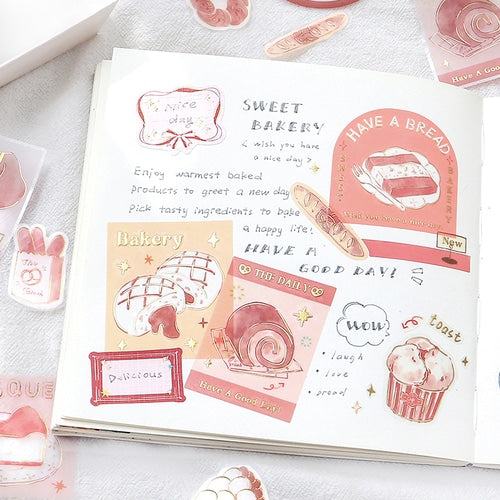 Have A Good
Nice
day
SWEET
BAKERY
< wish you have
a nice day >
HAVE A BREAD
SWEET
BAKERY
Enjoy warmest baked
products to greet a new day
Pick tasty ingredients to bake
a happy life!
HAVE A
GOOD DAY!
New
Bakery
THE DAILY
Have A Good Day!
Delicious
WOW
toast
• laugh
• love
• proud
QUE